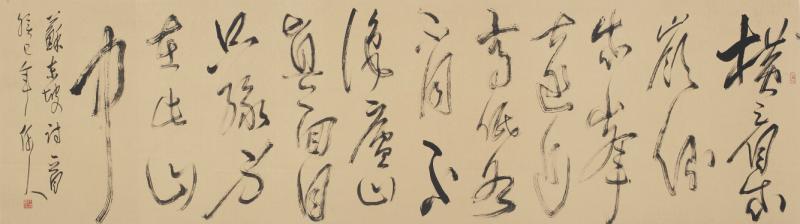 橫看成
嶺側
成峯
遠近
高低各
不同不
識廬山
真面目
只緣身
在此山
中
蘇東坡詩一首
癸巳年